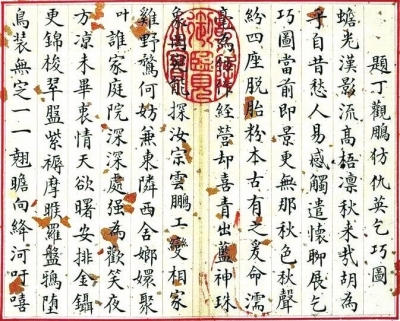 題丁觀鵬仿仇英乞巧圖
蟾光漢影流高梧凜秋来哉胡為
乎自昔愁人易感觸遣懷聊展乞
巧圖當前即景更無那秋色秋聲
紛四座脫胎粉本古有之爰命濡
毫為經營却喜青出藍神珠
象罔能探汝宗雲鵬工相家
雞野鶩何妨兼東隣西舍嬛聚
叶誰家庭院深深處强為歡笑夜
方凉未畢衷情天欲曙安排金鑷
更錦梭翠紫褥摩睺羅盤鴉堕
馬裝無定一一翹瞻向絳河吁嘻